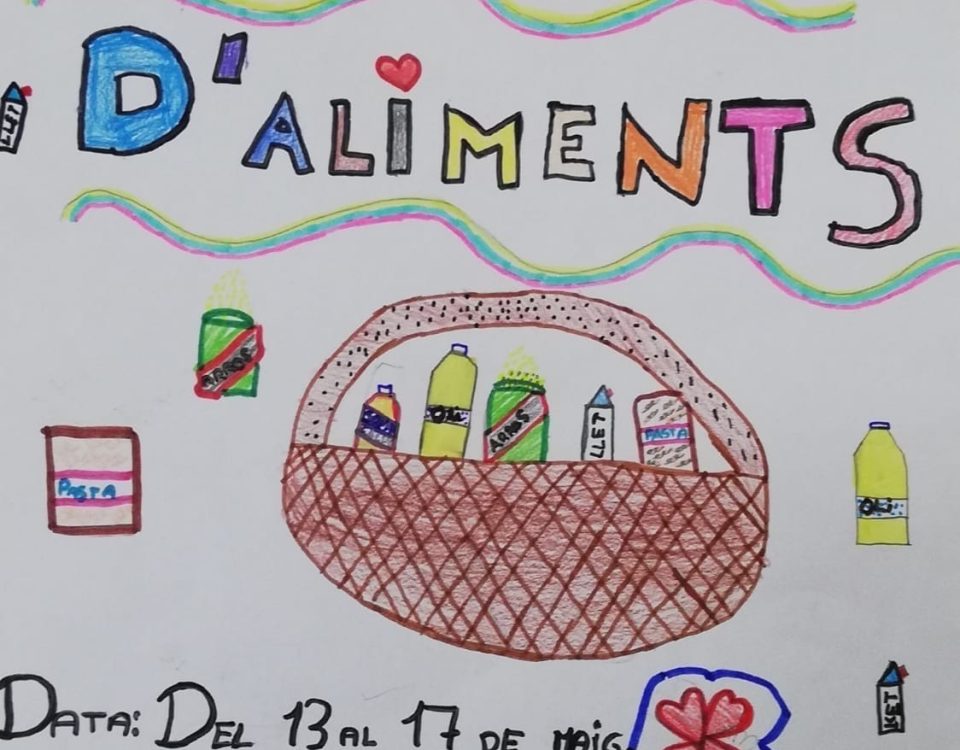 D'ALiMENTS
LLET
ARROS
OLi
ARROS
LLET
PASTA
PASTA
OLi
LLET
DATA: DEL 13 AL 17 DE MAIG